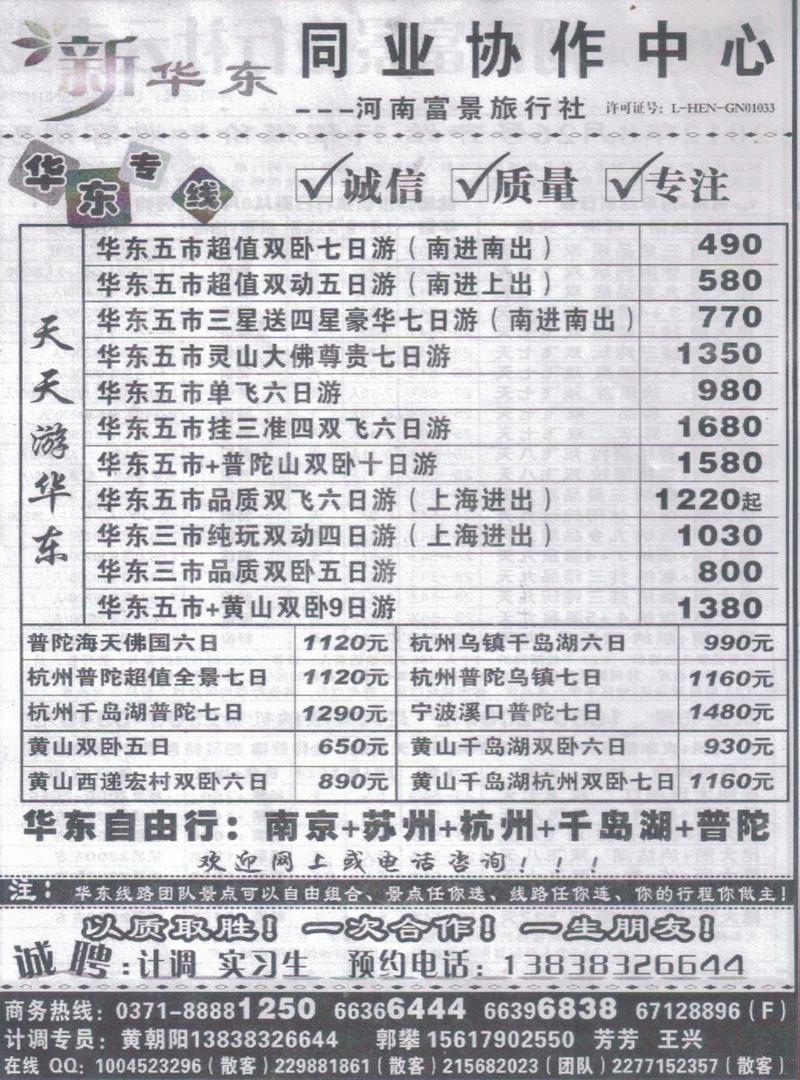 新华东
同业协作中心
---河南富景旅行社 许可证号：L-HEN-GN01033
华东专线
✓诚信 ✓质量 ✓专注
天天游华东
华东五市超值双卧七日游（南进南出） 490
华东五市超值双动五日游（南进上出） 580
华东五市三星送四星豪华七日游（南进南出） 770
华东五市灵山大佛尊贵七日游 1350
华东五市单飞六日游 980
华东五市挂三准四双飞六日游 1680
华东五市+普陀山双卧十日游 1580
华东五市品质双飞六日游（上海进出） 1220起
华东三市纯玩双动四日游（上海进出） 1030
华东三市品质双卧五日游 800
华东五市+黄山双卧9日游 1380
普陀海天佛国六日 1120元 杭州乌镇千岛湖六日 990元
杭州普陀超值全景七日 1120元 杭州普陀乌镇七日 1160元
杭州千岛湖普陀七日 1290元 宁波溪口普陀七日 1480元
黄山双卧五日 650元 黄山千岛湖双卧六日 930元
黄山西递宏村双卧六日 890元 黄山千岛湖杭州双卧七日 1160元
华东自由行：南京+苏州+杭州+千岛湖+普陀
欢迎网上或电话咨询！！！
注：华东线路团队景点可以自由组合、景点任你选、线路任你连、你的行程你做主！
以质取胜！一次合作！一生朋友！
诚聘：计调 实习生 预约电话：13838326644
商务热线：0371-88881250 66366444 66396838 67128896（F）
计调专员：黄朝阳13838326644 郭攀15617902550 芳芳 王兴
在线 QQ：1004523296（散客）229881861（散客）215682023（团队）2277152357（散客）